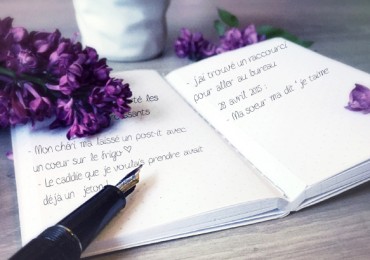 té les
ssants
- Mon chéri m'a laissé un post-it avec
un cœur sur le frigo ♡
- Le caddie que je voulais prendre avait
déjà un jeton
- j'ai trouvé un raccourci
pour aller au bureau
28 avril 2015 :
- Ma sœur m'a dit "je t'aime